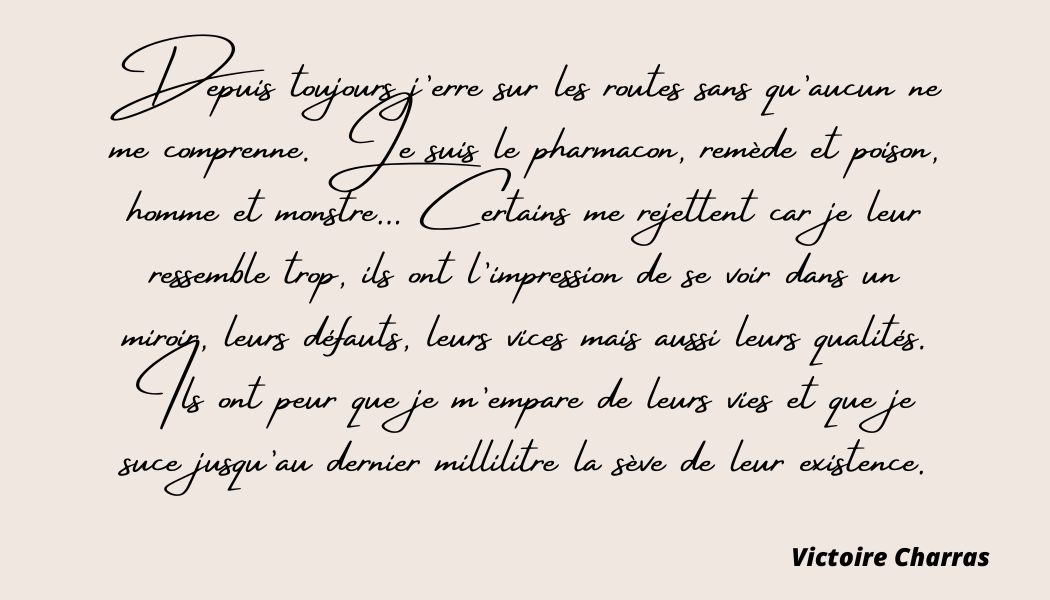 Depuis toujours j'erre sur les routes sans qu'aucun ne
me comprenne. Je suis le pharmacon, remède et poison,
homme et monstre... Certains me rejettent car je leur
ressemble trop, ils ont l'impression de se voir dans un
miroir, leurs défauts, leurs vices mais aussi leurs qualités.
Ils ont peur que je m'empare de leurs vies et que je
suce jusqu'au dernier millilitre la sève de leur existence.
Victoire Charras